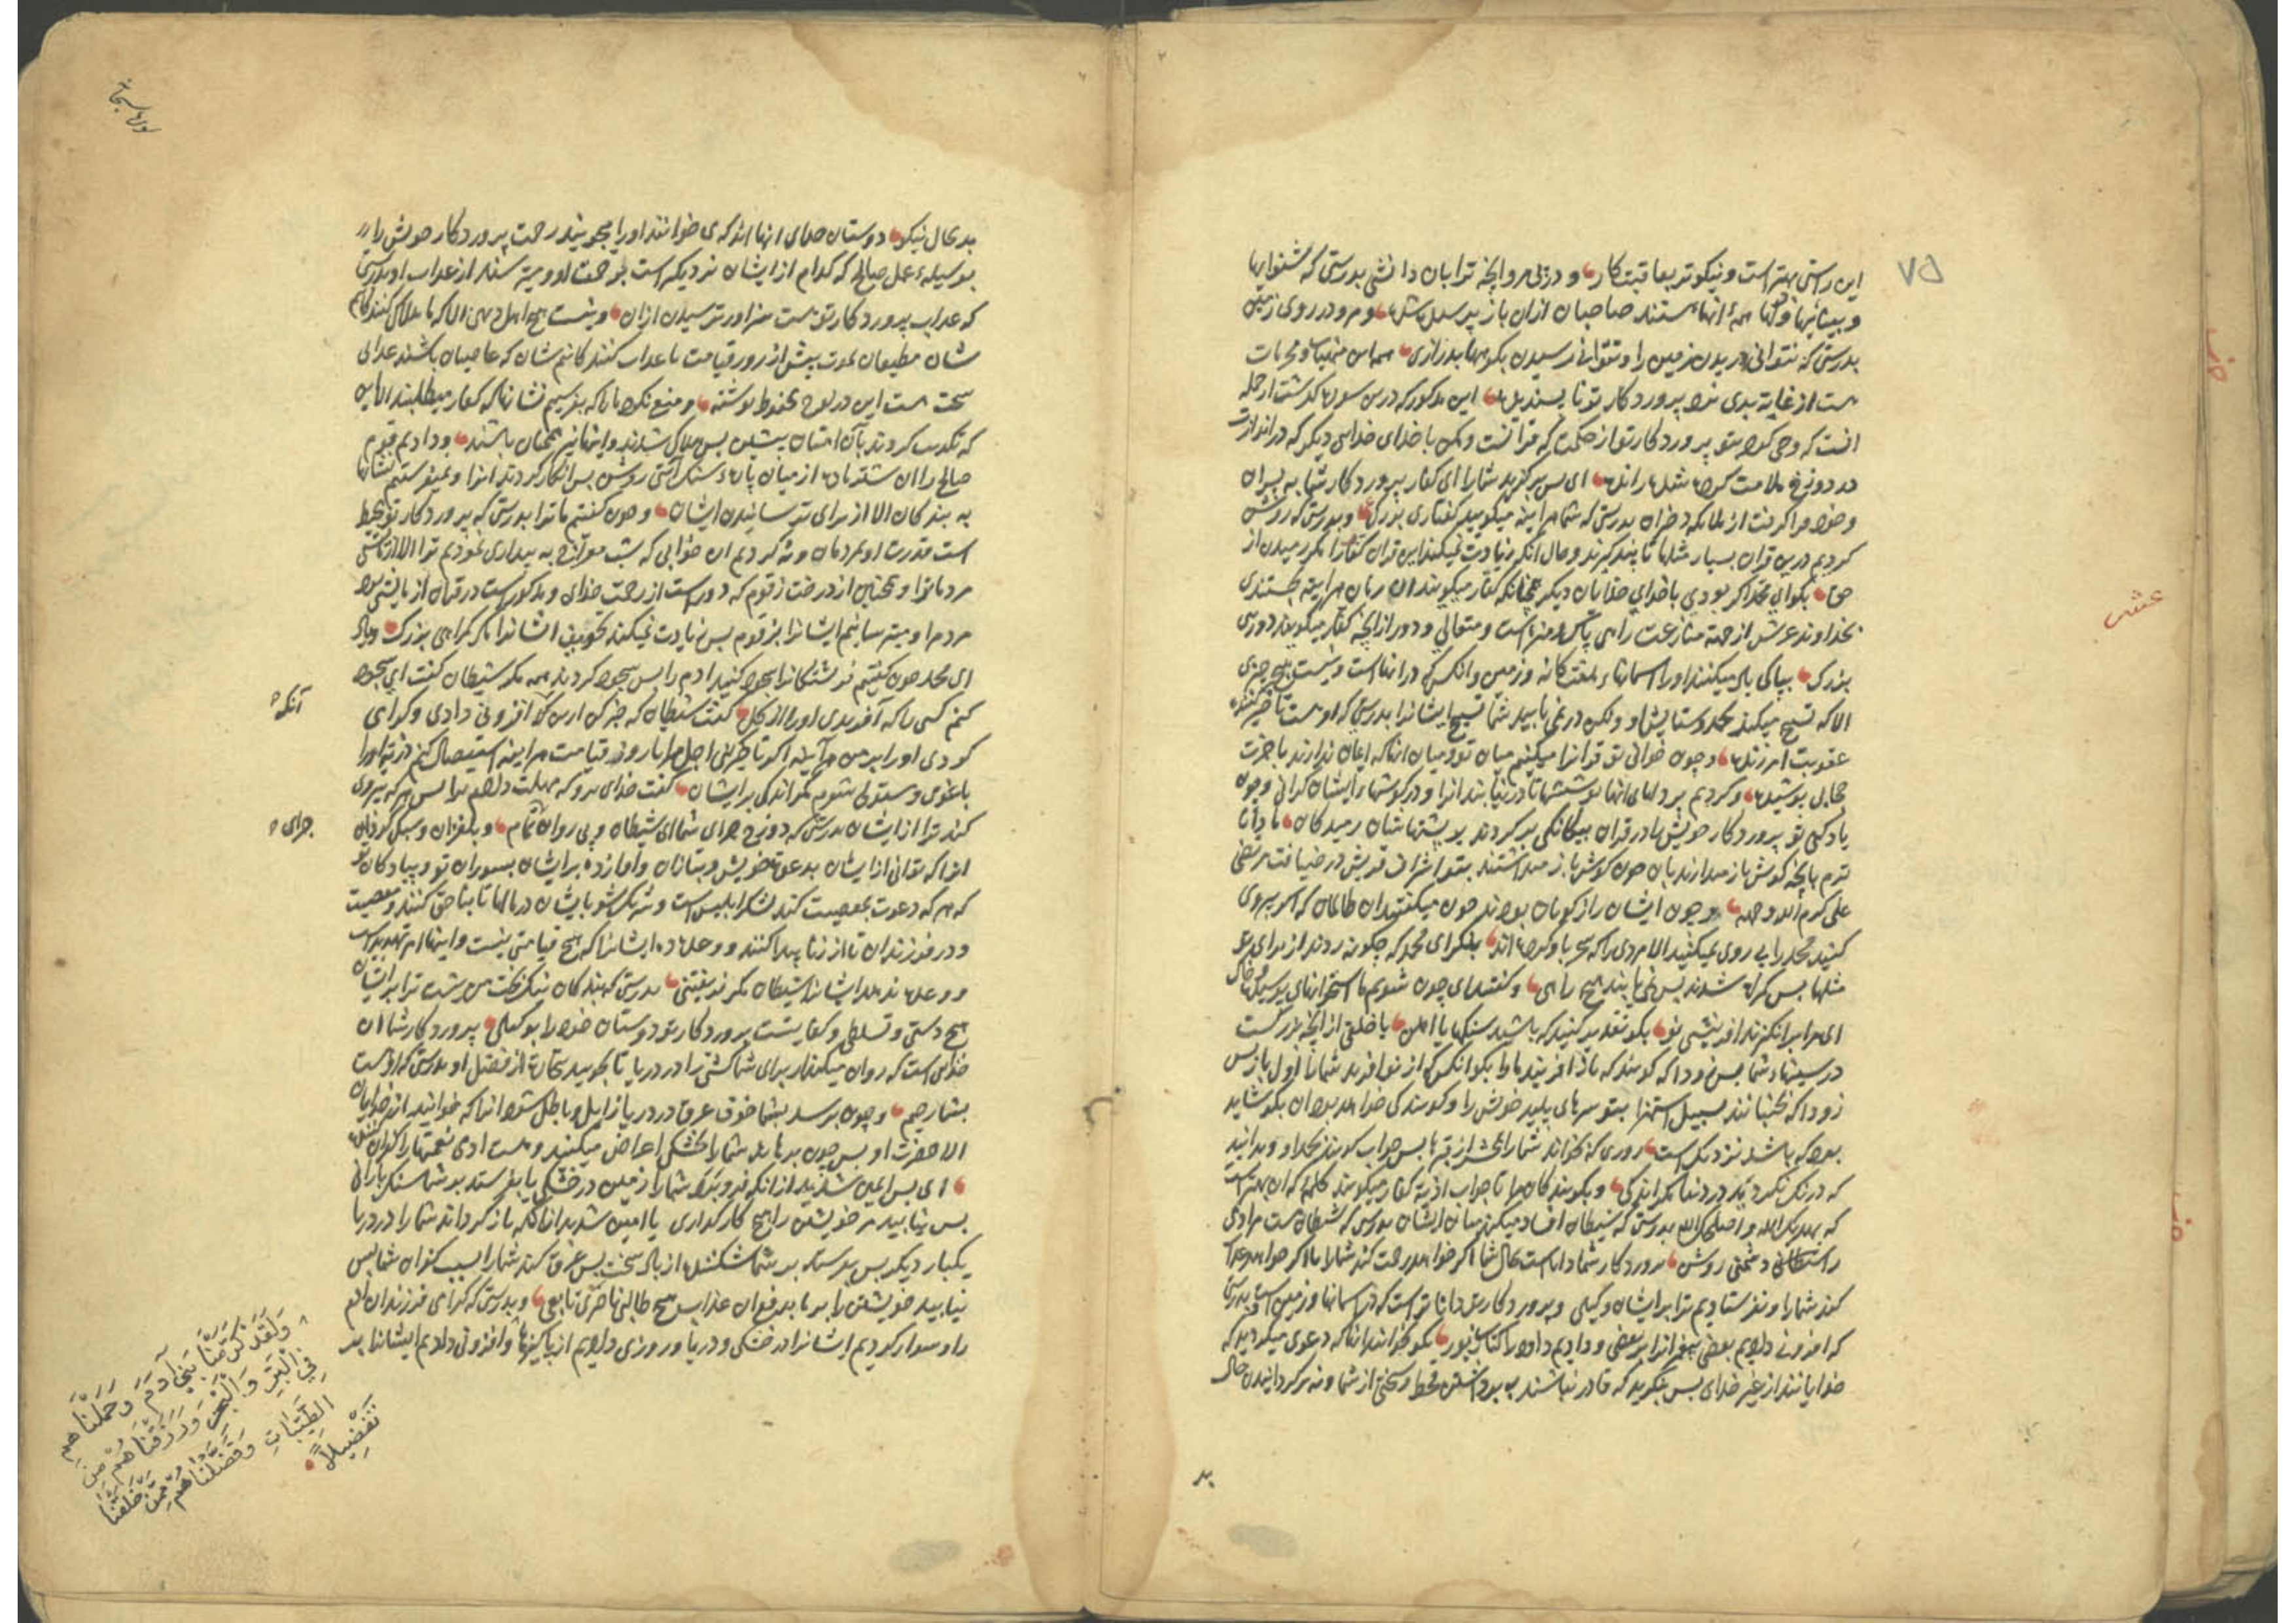 ۷۵
این راستی بهتر است و نیکوتر بعاقبت کار و در پی مرو انچه ترا بان دانشی بدرستی که شنوایها
و بیناییها و دلها همهٔ انها هستند صاحبان ازان باز پرسیده شده و مرو در روی زمین
بدرستی که نتوانی دریدن زمین را و نتوانی رسیدن بکوهها بدرازی همه این منهیات و محرمات
هست از غایة بدی نزد پروردکار تو ناپسندیده این مذکور که درین سوره کذشت از جمله
انست که وحی کرده بتو پروردکار تو از حکمت که قرانست و مکن با خدای خدایی دیکر که در اندازند
در دوزخ ملامت کرده شده رانده ای پس برکزید شما را ای کفار پروردکار شما به پسران
و خود فرا کرفت از ملایکه دختران بدرستی که شما هراینه میکویید کفتاری بزرک و بدرستی که روشن
کردیم درین قران بسیار مثلها تا پند کیرند و حال آنکه زیادت نمیکند این قران کفار را مکر رمیدن از
حق بکو ای محمد اکر بودی با خدای خدایان دیکر چنانکه کفار میکویند ان زمان هراینه جستندی
بخداوند عرش از جهة منازعت راهی پاک و منزه است و متعالی و دور از انچه کفار میکویند دوری
بزرک بپاکی یاد میکنند او را اسمانهاء هفت کانه و زمین و انکس که در انها است و نیست هیچ چیزی
الا که تسبیح میکند بحمد و ستایش او ولکن در نمی یابید شما تسبیح ایشانرا بدرستی که او هست تاخیر کننده
عقوبت امرزنده و چون خوانی تو قرانرا میکنیم میان تو و میان انانکه ایمان ندارند باخرت
حجابی پوشیده و کردیم بر دلهای انها پوششها تا در نیابند انرا و در کوشهاء ایشان کرانی و چون
یاد کنی تو پروردکار خویش را در قران بیکانکی بر کردند بر پشتهاشان رمیدکان ما دانا
تریم بانچه کوش باز میدارند بان چون کوش باز میداشتند بتو اشراف قریش در ضیافت مرتضی
علی کرم الله وجهه و چون ایشان راز کویان بودند چون میکفتند ان ظالمان که اکر پیروی
کنید محمد را پیروی نمیکنید الا مردی را که سحر با او کرده اند بنکر ای محمد که چکونه زدند از برای تو
مثلها پس کمراه شدند پس نمی یابند هیچ راهی و کفتند ای چون شویم ما استخوانهای پوسیده و خاک
ای ما برانکیزند افرینشی نو بکو تقدیر کنید که باشید سنکها یا اهن یا خلقی از انچه بزرکست
در سینهاء شما پس زود که کویند که باز افریند ما را بکو انکس که از نو افرید شما را اول بار پس
زود که بجنبانند بسبیل استهزا بتو سرهای پلید خویش را و کویند کی خواهد بود ان بکو شاید
بود که باشد نزدیک است روزی که بخواند شما را بحشر از قبرها پس جواب کویند بحمد او و بدانید
که درنک نکردید در دنیا مکر اندکی و بکو بندکان مرا تا جواب اذیة کفار میکویند کلمهٔ که ان بهتر است
که یهدیک الله و اصلحک الله بدرستی که شیطان افساد میکند میان ایشان بدرستی که شیطان هست مر ادمی
را دشمنی روشن پروردکار شما داناست بحال شما اکر خواهد رحمت کند شما را یا اکر خواهد عذاب
کند شما را و نفرستادیم ترا بر ایشان وکیلی و پروردکار تو داناتر است که در اسمانها و زمین است و بدرستی
که افزونی دادیم بعضی پیغمبرانرا بر بعضی و دادیم داود را کتاب زبور بکو بخوانید انانکه دعوی میکردید که
خدایانند از غیر خدای پس بنکرید که قادر نباشند ببرداشتن قحط و سختی از شما و نه بر کردانیدن حال
بد
عشر
بد بحال نیکو دوستان خدای انها اند که می خوانند او را میجویند رحمت پروردکار خویش را
بوسیلهٔ عمل صالح که کدام از ایشان نزدیکتر است برحمت او و میترسند از عذاب او بدرستی
که عذاب پروردکار تو هست سزاوار ترسیدن ازان و نیست هیچ اهل دیهی الا که ما هلاک کننده ایم
شان مطیعان بموت پیش از روز قیامت یا عذاب کننده ایم شان که عاصیان باشند عذابی
سخت هست این در لوح محفوظ نوشته و منع نکرد ما را که بفرستیم نشانها که کفار میطلبند الا این
که تکذیب کردند بآن امتان پیشین پس هلاک شدند و اینها نیز همچنان باشند و دادیم قوم
صالح را ان شتر ماده از میان پارهٔ سنک آیتی روشن پس انکار کردند انرا و نمیفرستیم نشانها
به بندکان الا از برای ترسانیدن ایشان و چون کفتیم ما ترا بدرستی که پروردکار تو محیط
است قدرت او بمردمان و نه کردیم ان خوابی که شب معراج به بیداری نمودیم ترا الا ازمایشی
مردمانرا و همچنین از درخت زقوم که دورست از رحمت خدای و مذکورست در قران ازمایشی بود
مردم را و میترسانیم ایشانرا بزقوم پس زیادت نمیکند تخویف ایشانرا مکر کمراهی بزرک و یاد
ای محمد چون کفتیم فرشتکانرا سجود کنید ادم را پس سجود کردند همه مکر شیطان کفت ای سجود
کنم کسی را که آفریدی او را از کل کفت شیطان که خبر کن این کس را افزونی دادی و کرامی
کردی او را بر من هرآینه اکر تاخیر کنی اجل مرا تا روز قیامت هراینه استیصال کنم ذریة او را
باغوی و مستولی شوم مکر اندکی بر ایشان کفت خدای برو که مهلت دادم ترا پس هر که پیروی
کند ترا از ایشان بدرستی که دوزخ جزای شما ای شیطان و پی روان تمام و بلغزان و سبک کردان
انرا که توانی از ایشان بدعوة خویش و بتازان و آواز ده بر ایشان بسواران تو و پیادکان تو
که هر که دعوت بمعصیت کند لشکر ابلیس است و شریک شو با ایشان در مالها تا بناحق کنند و معصیت
و در فرزندان تا از زنا پیدا کنند و وعده ده ایشانرا که هیچ قیامتی نیست و اینها امر تهدیدست
و وعده ندهد ایشانرا شیطان مکر فریفتنی بدرستی که بندکان نیکبخت من نیست ترا بر ایشان
هیچ دستی و تسلطی و کفایتست پروردکار تو دوستان خود را بوکیلی پروردکار شما ان
خدای است که روان میکند از برای شما کشتی را در دریا تا بجویید تجارت از فضل او بدرستی که اوست
بشما رحیم و چون برسد بشما خوف غرق در دریا زایل و باطل شود انرا که خوانید از خدایان
الا حضرت او پس چون برهاند شما را بخشکی اعراض میکنید و هست ادمی نعمتها را کفران کننده
ای پس ایمن شدید از انکه فرو برد شما را زمین در خشکی یا بفرستد بر شما سنک بارانی
پس نیابید مر خویشتن را هیچ کارکذاری یا امین شدید از انکه باز کرداند شما را در دریا
یکبار دیکر پس بفرستد بر شما شکننده از باد سخت پس غرق کند شما را بسبب کفران شما پس
نیابید خویشتن را بر ما بدفع ان عذاب هیچ طالبی ناصری تابعی و بدرستی که کرامی فرزندان ادم
را و سوار کردیم ایشانرا در خشکی و دریا و روزی دادیم از پاکیزها و افزونی دادیم ایشانرا بر
آنکه
جزای
وَلَقَدْ كَرَّمْنَا بَنِي آدَمَ وَحَمَلْنَاهُمْ
فِي الْبَرِّ وَالْبَحْرِ وَرَزَقْنَاهُمْ مِنَ
الطَّيِّبَاتِ وَفَضَّلْنَاهُمْ مِمَّنْ خَلَقْنَا
تَفْضِيلًا